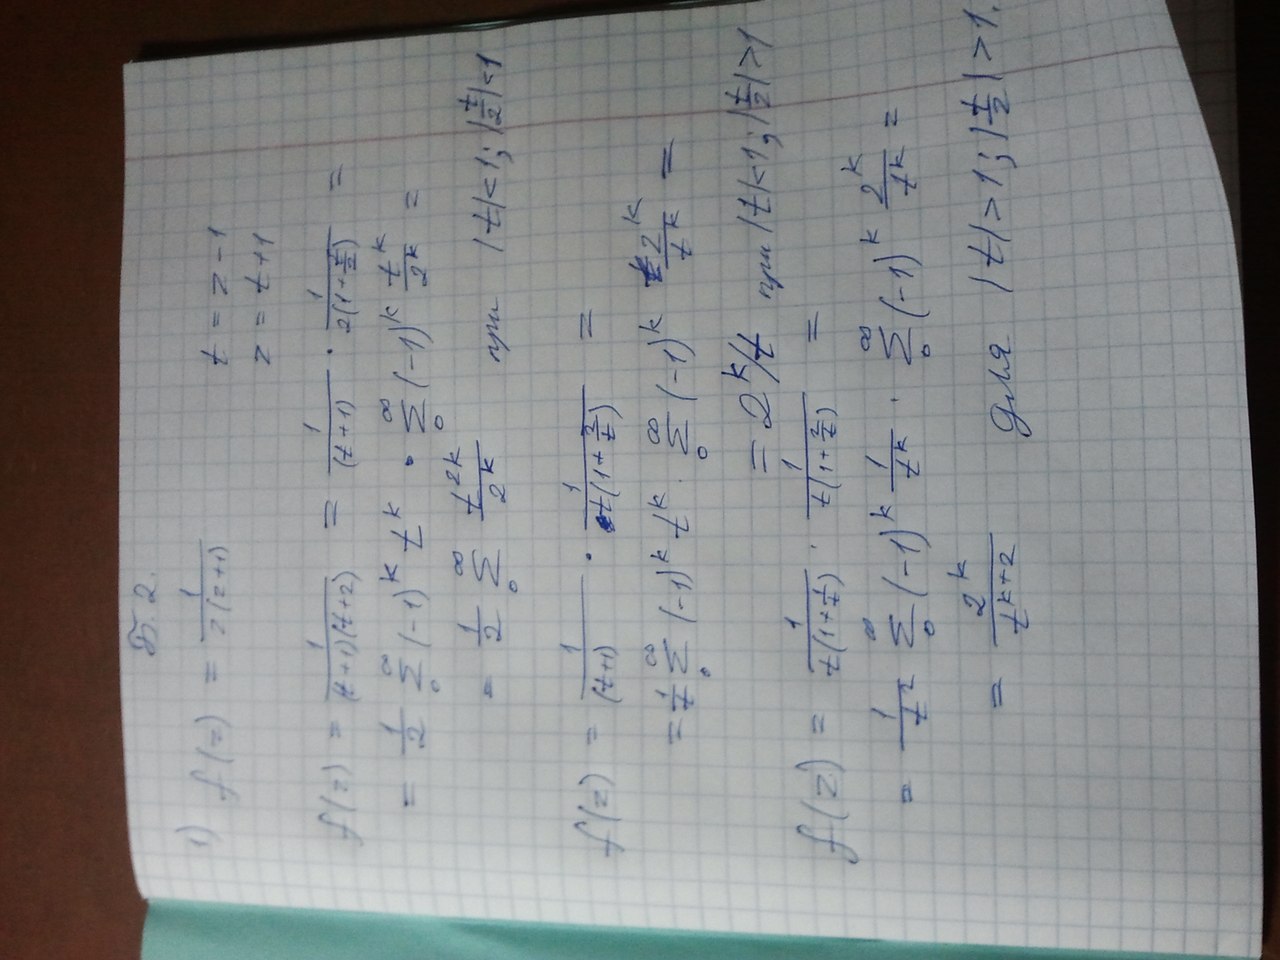 Б.2.
1) f(z) = 1/(z(z+1))    t = z-1
z = t+1
f(z) = 1/((t+1)(t+2)) = 1/(t+1) · 1/(2(1+t/2)) =
= 1/2 ∑₀^∞ (-1)^k t^k · ∑₀^∞ (-1)^k t^k/2^k =
= 1/2 ∑₀^∞ t^2k/2^k   при |t|<1; |t/2|<1
f(z) = 1/(t+1) · 1/(t(1+2/t)) =
= 1/t ∑₀^∞ (-1)^k t^k · ∑₀^∞ (-1)^k 2^k/t^k =
= 2^k/t при |t|<1; |t/2|>1
f(z) = 1/(t(1+1/t)) · 1/(t(1+2/t)) =
= 1/t² ∑₀^∞ (-1)^k 1/t^k · ∑₀^∞ (-1)^k 2^k/t^k =
= 2^k/t^(k+2)   для |t|>1; |t/2|>1.